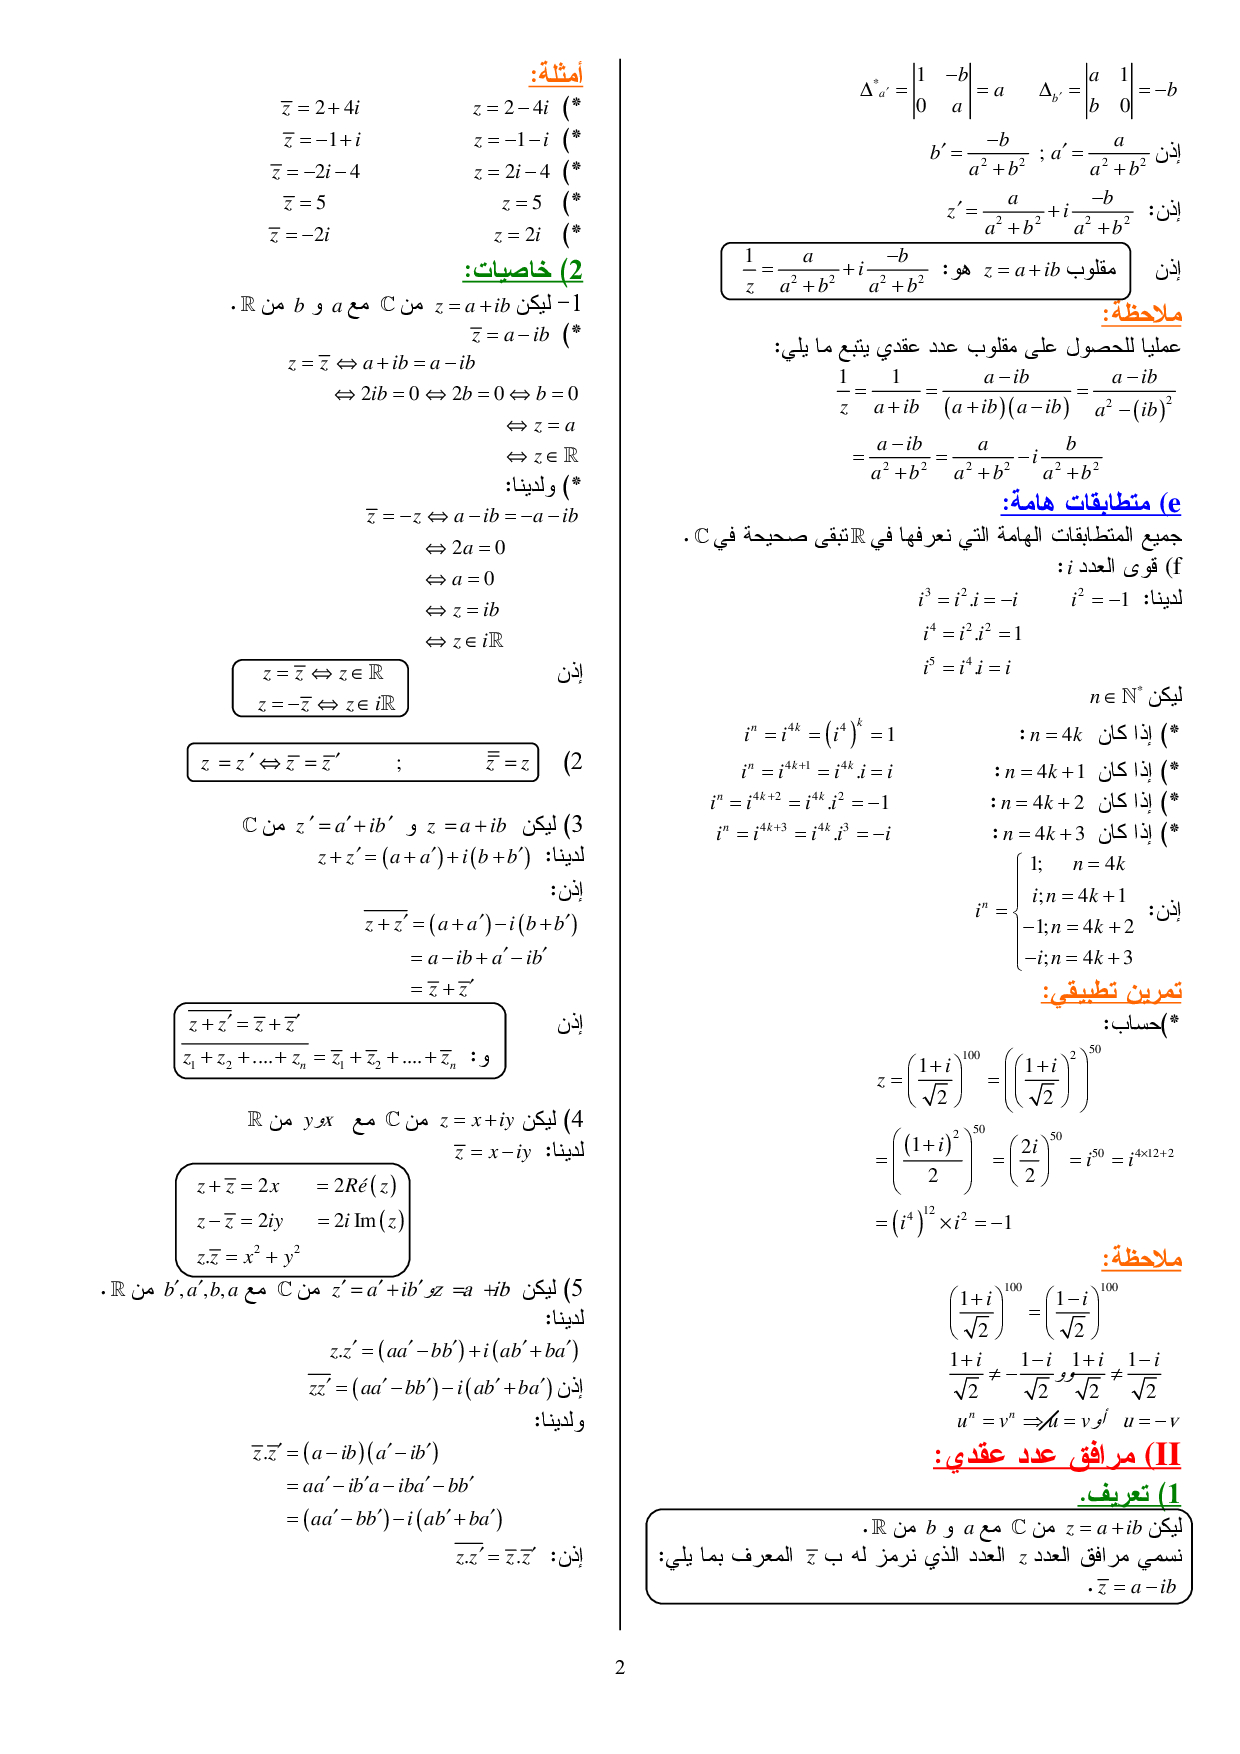 Δ*a′ = |1 −b; 0 a| = a    Δb′ = |a 1; b 0| = −b
إذن a′ = a/(a² + b²) ; b′ = −b/(a² + b²)
إذن: z′ = a/(a² + b²) + i −b/(a² + b²)
إذن مقلوب z = a + ib هو: 1/z = a/(a² + b²) + i −b/(a² + b²)
ملاحظة:
عمليا للحصول على مقلوب عدد عقدي يتبع ما يلي:
1/z = 1/(a + ib) = (a − ib)/((a + ib)(a − ib)) = (a − ib)/(a² − (ib)²)
= (a − ib)/(a² + b²) = a/(a² + b²) − i b/(a² + b²)
e) متطابقات هامة:
جميع المتطابقات الهامة التي نعرفها في ℝ تبقى صحيحة في ℂ .
f) قوى العدد i :
لدينا: i² = −1    i³ = i².i = −i
i⁴ = i².i² = 1
i⁵ = i⁴.i = i
ليكن n ∈ ℕ*
*) إذا كان n = 4k :    iⁿ = i^{4k} = (i⁴)^k = 1
*) إذا كان n = 4k + 1 :    iⁿ = i^{4k+1} = i^{4k}.i = i
*) إذا كان n = 4k + 2 :    iⁿ = i^{4k+2} = i^{4k}.i² = −1
*) إذا كان n = 4k + 3 :    iⁿ = i^{4k+3} = i^{4k}.i³ = −i
إذن: iⁿ = {
1; n = 4k
i; n = 4k + 1
−1; n = 4k + 2
−i; n = 4k + 3
تمرين تطبيقي:
*)حساب:
z = ((1 + i)/√2)^{100} = (((1 + i)/√2)²)^{50}
= ((1 + i)²/2)^{50} = (2i/2)^{50} = i^{50} = i^{4×12+2}
= (i⁴)^{12} × i² = −1
ملاحظة:
((1 + i)/√2)^{100} = ((1 − i)/√2)^{100}
(1 + i)/√2 ≠ −(1 − i)/√2 و و (1 + i)/√2 ≠ (1 − i)/√2
uⁿ = vⁿ ⇏ u = v أو u = −v
II) مرافق عدد عقدي:
1) تعريف.
ليكن z = a + ib من ℂ مع a و b من ℝ .
نسمي مرافق العدد z العدد الذي نرمز له ب z̅ المعرف بما يلي:
z̅ = a − ib .
أمثلة:
*) z = 2 − 4i    z̅ = 2 + 4i
*) z = −1 − i    z̅ = −1 + i
*) z = 2i − 4    z̅ = −2i − 4
*) z = 5    z̅ = 5
*) z = 2i    z̅ = −2i
2) خاصيات:
1- ليكن z = a + ib من ℂ مع a و b من ℝ .
*) z̅ = a − ib
z = z̅ ⇔ a + ib = a − ib
⇔ 2ib = 0 ⇔ 2b = 0 ⇔ b = 0
⇔ z = a
⇔ z ∈ ℝ
*) ولدينا:
z̅ = −z ⇔ a − ib = −a − ib
⇔ 2a = 0
⇔ a = 0
⇔ z = ib
⇔ z ∈ iℝ
إذن z = z̅ ⇔ z ∈ ℝ
z = −z̅ ⇔ z ∈ iℝ
2) z̅̅ = z    ;    z = z′ ⇔ z̅ = z̅′
3) ليكن z = a + ib و z′ = a′ + ib′ من ℂ
لدينا: z + z′ = (a + a′) + i(b + b′)
إذن:
\overline{z + z′} = (a + a′) − i(b + b′)
= a − ib + a′ − ib′
= z̅ + z̅′
إذن \overline{z + z′} = z̅ + z̅′
و: \overline{z₁ + z₂ + .... + zₙ} = z̅₁ + z̅₂ + .... + z̅ₙ
4) ليكن z = x + iy من ℂ مع x و y من ℝ
لدينا: z̅ = x − iy
z + z̅ = 2x = 2Ré(z)
z − z̅ = 2iy = 2i Im(z)
z.z̅ = x² + y²
5) ليكن z = a + ib و z′ = a′ + ib′ من ℂ مع b′, a′, b, a من ℝ .
لدينا:
z.z′ = (aa′ − bb′) + i(ab′ + ba′)
إذن \overline{zz′} = (aa′ − bb′) − i(ab′ + ba′)
ولدينا:
z̅.z̅′ = (a − ib)(a′ − ib′)
= aa′ − ib′a − iba′ − bb′
= (aa′ − bb′) − i(ab′ + ba′)
إذن: \overline{z.z′} = z̅.z̅′
2